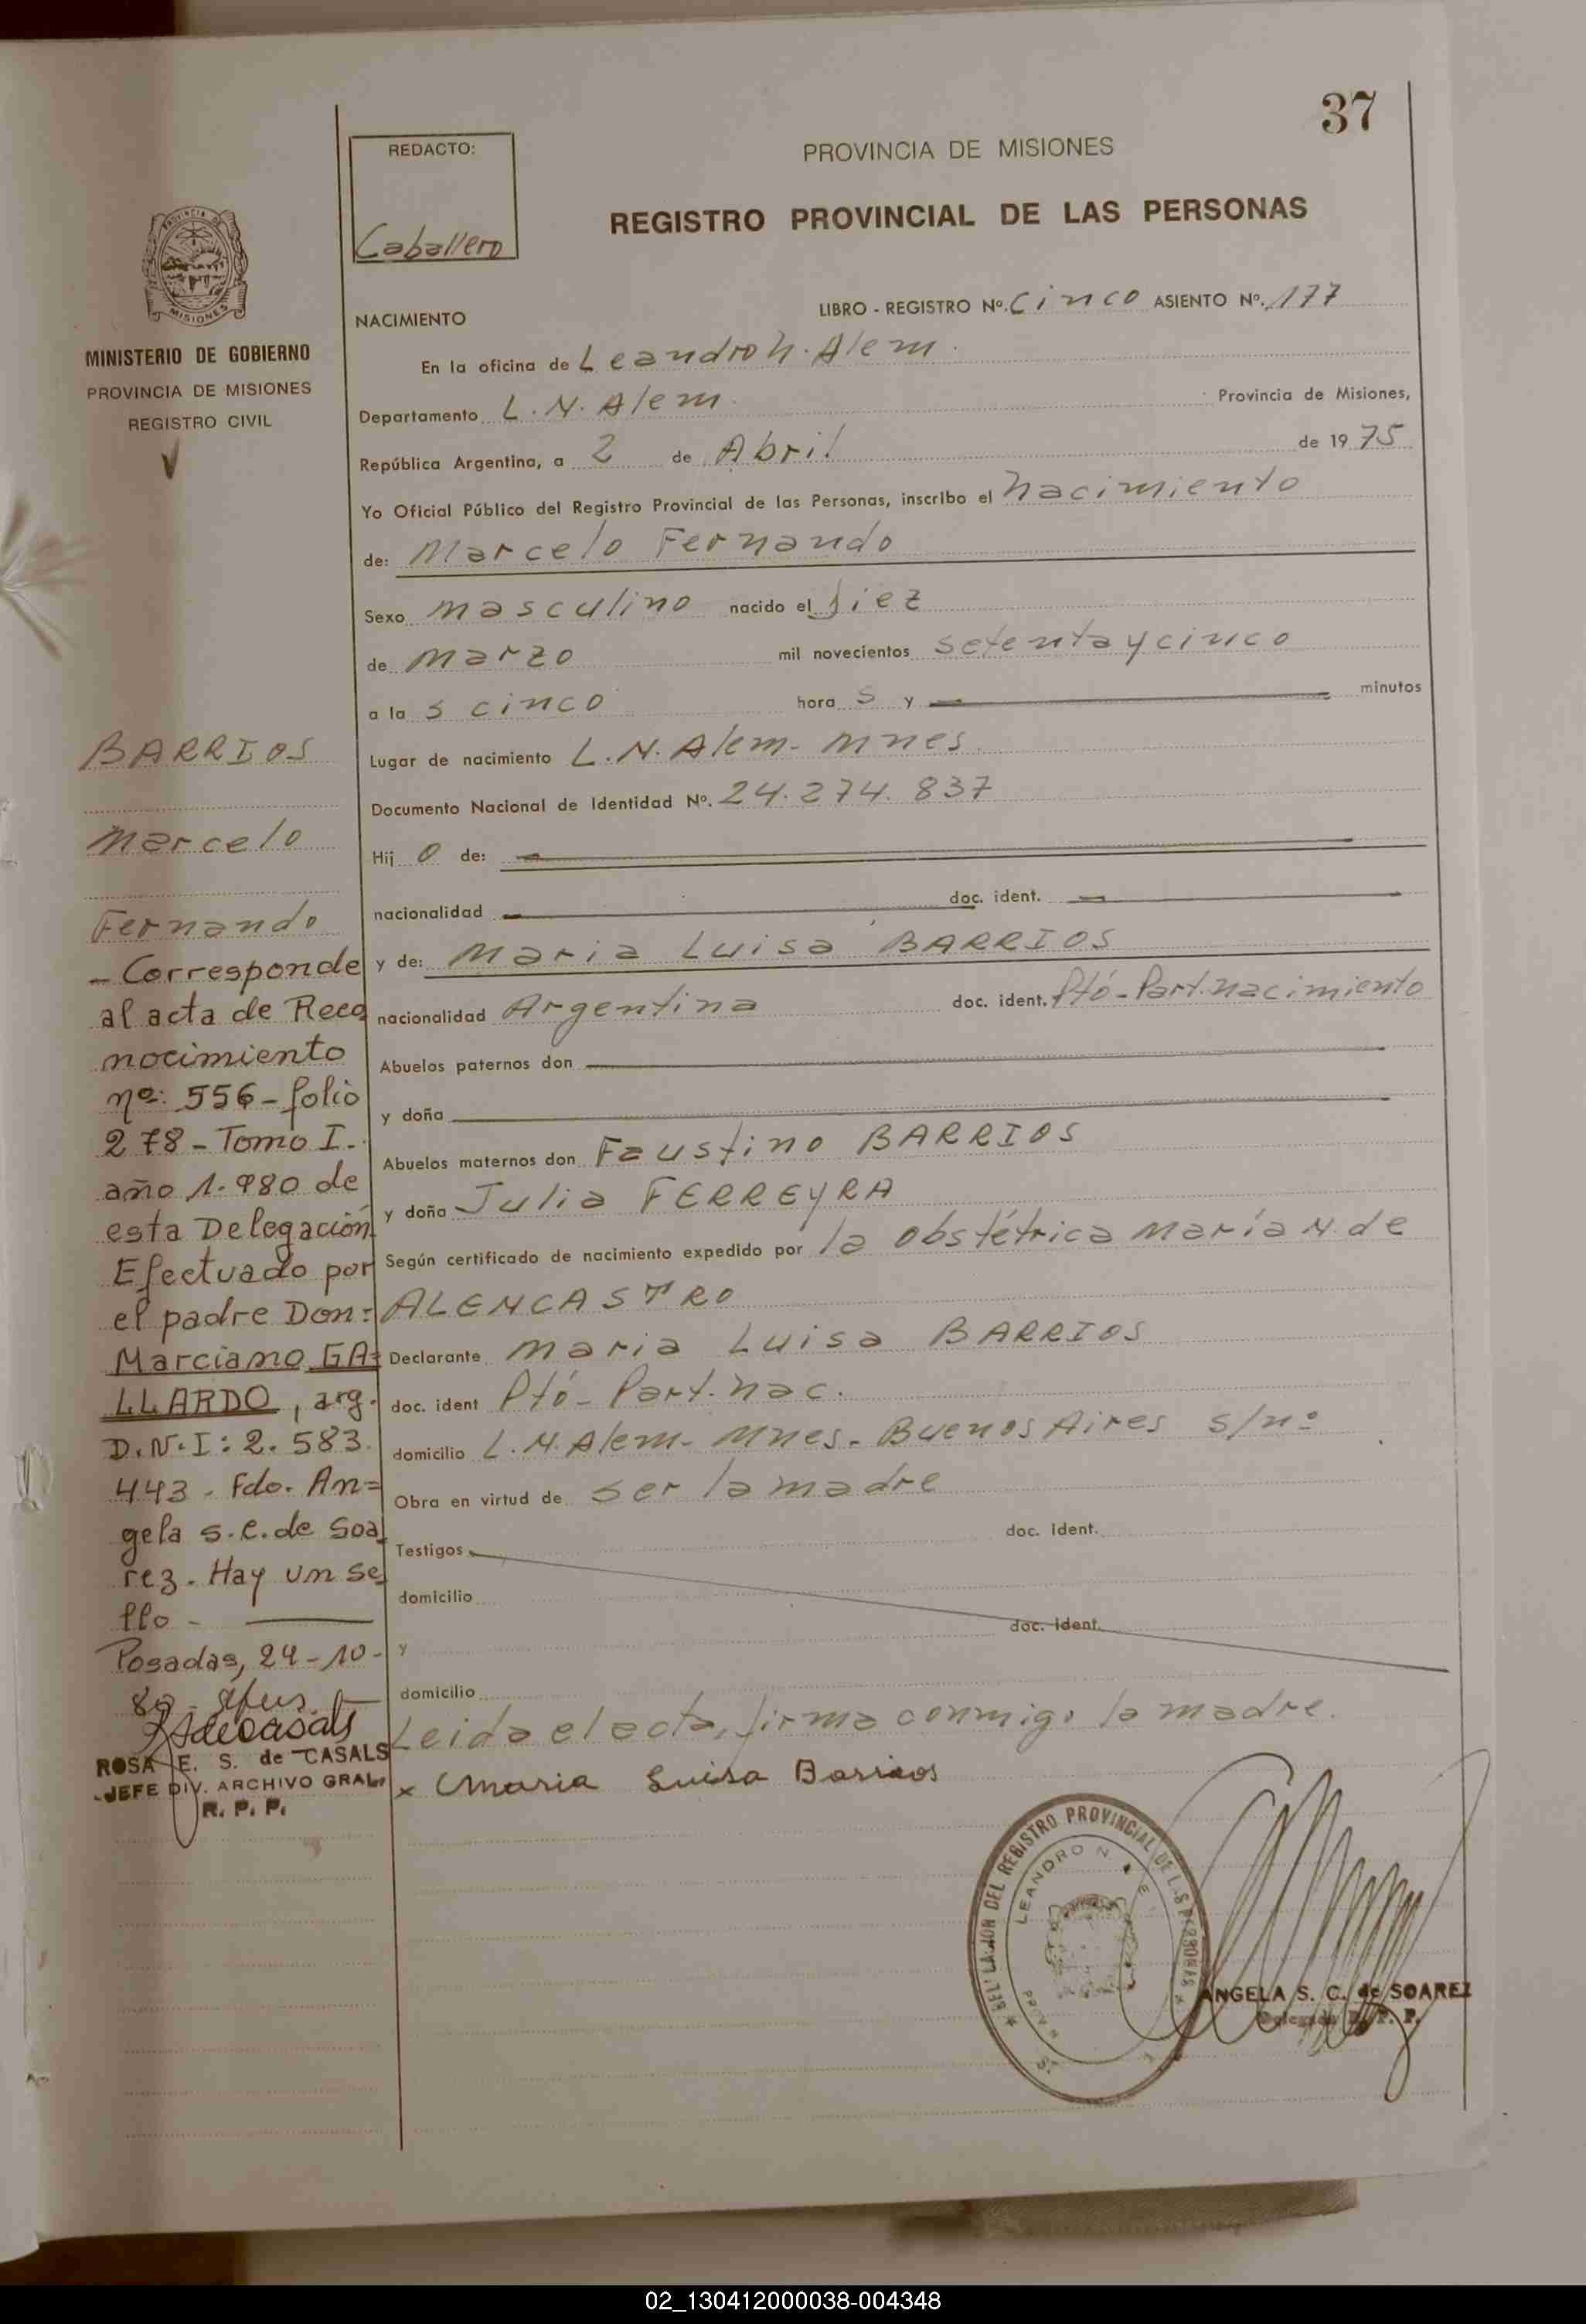 37
REDACTO:
Caballero
PROVINCIA DE MISIONES
REGISTRO PROVINCIAL DE LAS PERSONAS
PROVINCIA DE
MISIONES
MINISTERIO DE GOBIERNO
PROVINCIA DE MISIONES
REGISTRO CIVIL
NACIMIENTO
LIBRO - REGISTRO Nº. Cinco ASIENTO Nº. 177
En la oficina de Leandro N. Alem.
Departamento L. N. Alem. Provincia de Misiones,
República Argentina, a 2 de Abril de 1975
Yo Oficial Público del Registro Provincial de las Personas, inscribo el nacimiento
de: Marcelo Fernando
Sexo masculino nacido el diez
de marzo mil novecientos setenta y cinco
a la s cinco hora s y minutos
Lugar de nacimiento L. N. Alem - Mnes.
Documento Nacional de Identidad Nº. 24.274.837
Hij o de:
nacionalidad doc. ident.
y de: Maria Luisa BARRIOS
nacionalidad Argentina doc. ident. Ptó - Part. nacimiento
Abuelos paternos don
y doña
Abuelos maternos don Faustino BARRIOS
y doña Julia FERREYRA
Según certificado de nacimiento expedido por la obstétrica María N. de
ALENCASTRO
Declarante Maria Luisa BARRIOS
doc. ident Ptó - Part. nac.
domicilio L. N. Alem - Mnes. - Buenos Aires s/nº
Obra en virtud de ser la madre
doc. ident.
Testigos
domicilio
doc. ident.
y
domicilio
Leida el acta, firma conmigo la madre.
x Maria Luisa Barrios
BARRIOS
Marcelo
Fernando
- Corresponde
al acta de Reco
nocimiento
nº: 556 - folio
278 - Tomo I.-
año 1.980 de
esta Delegación
Efectuado por
el padre Don:
Marciano GA=
LLARDO, arg.
D.N.I: 2.583.
443 - Fdo. An=
gela S.C. de Soa
rez. Hay un se
llo -
Posadas, 24-10-
80
ROSA E. S. de CASALS
JEFE DIV. ARCHIVO GRAL.
R. P. P.
DEL REGISTRO PROVINCIAL DE
LEANDRO N
ANGELA S. C. de SOAREZ
R. P. P.
02_130412000038-004348